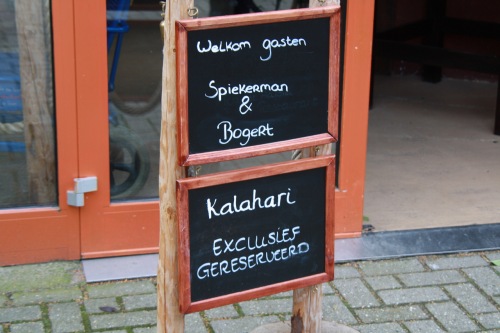 Welkom gasten
Spiekerman
&
Bogert
Kalahari
EXCLUSIEF
GERESERVEERD